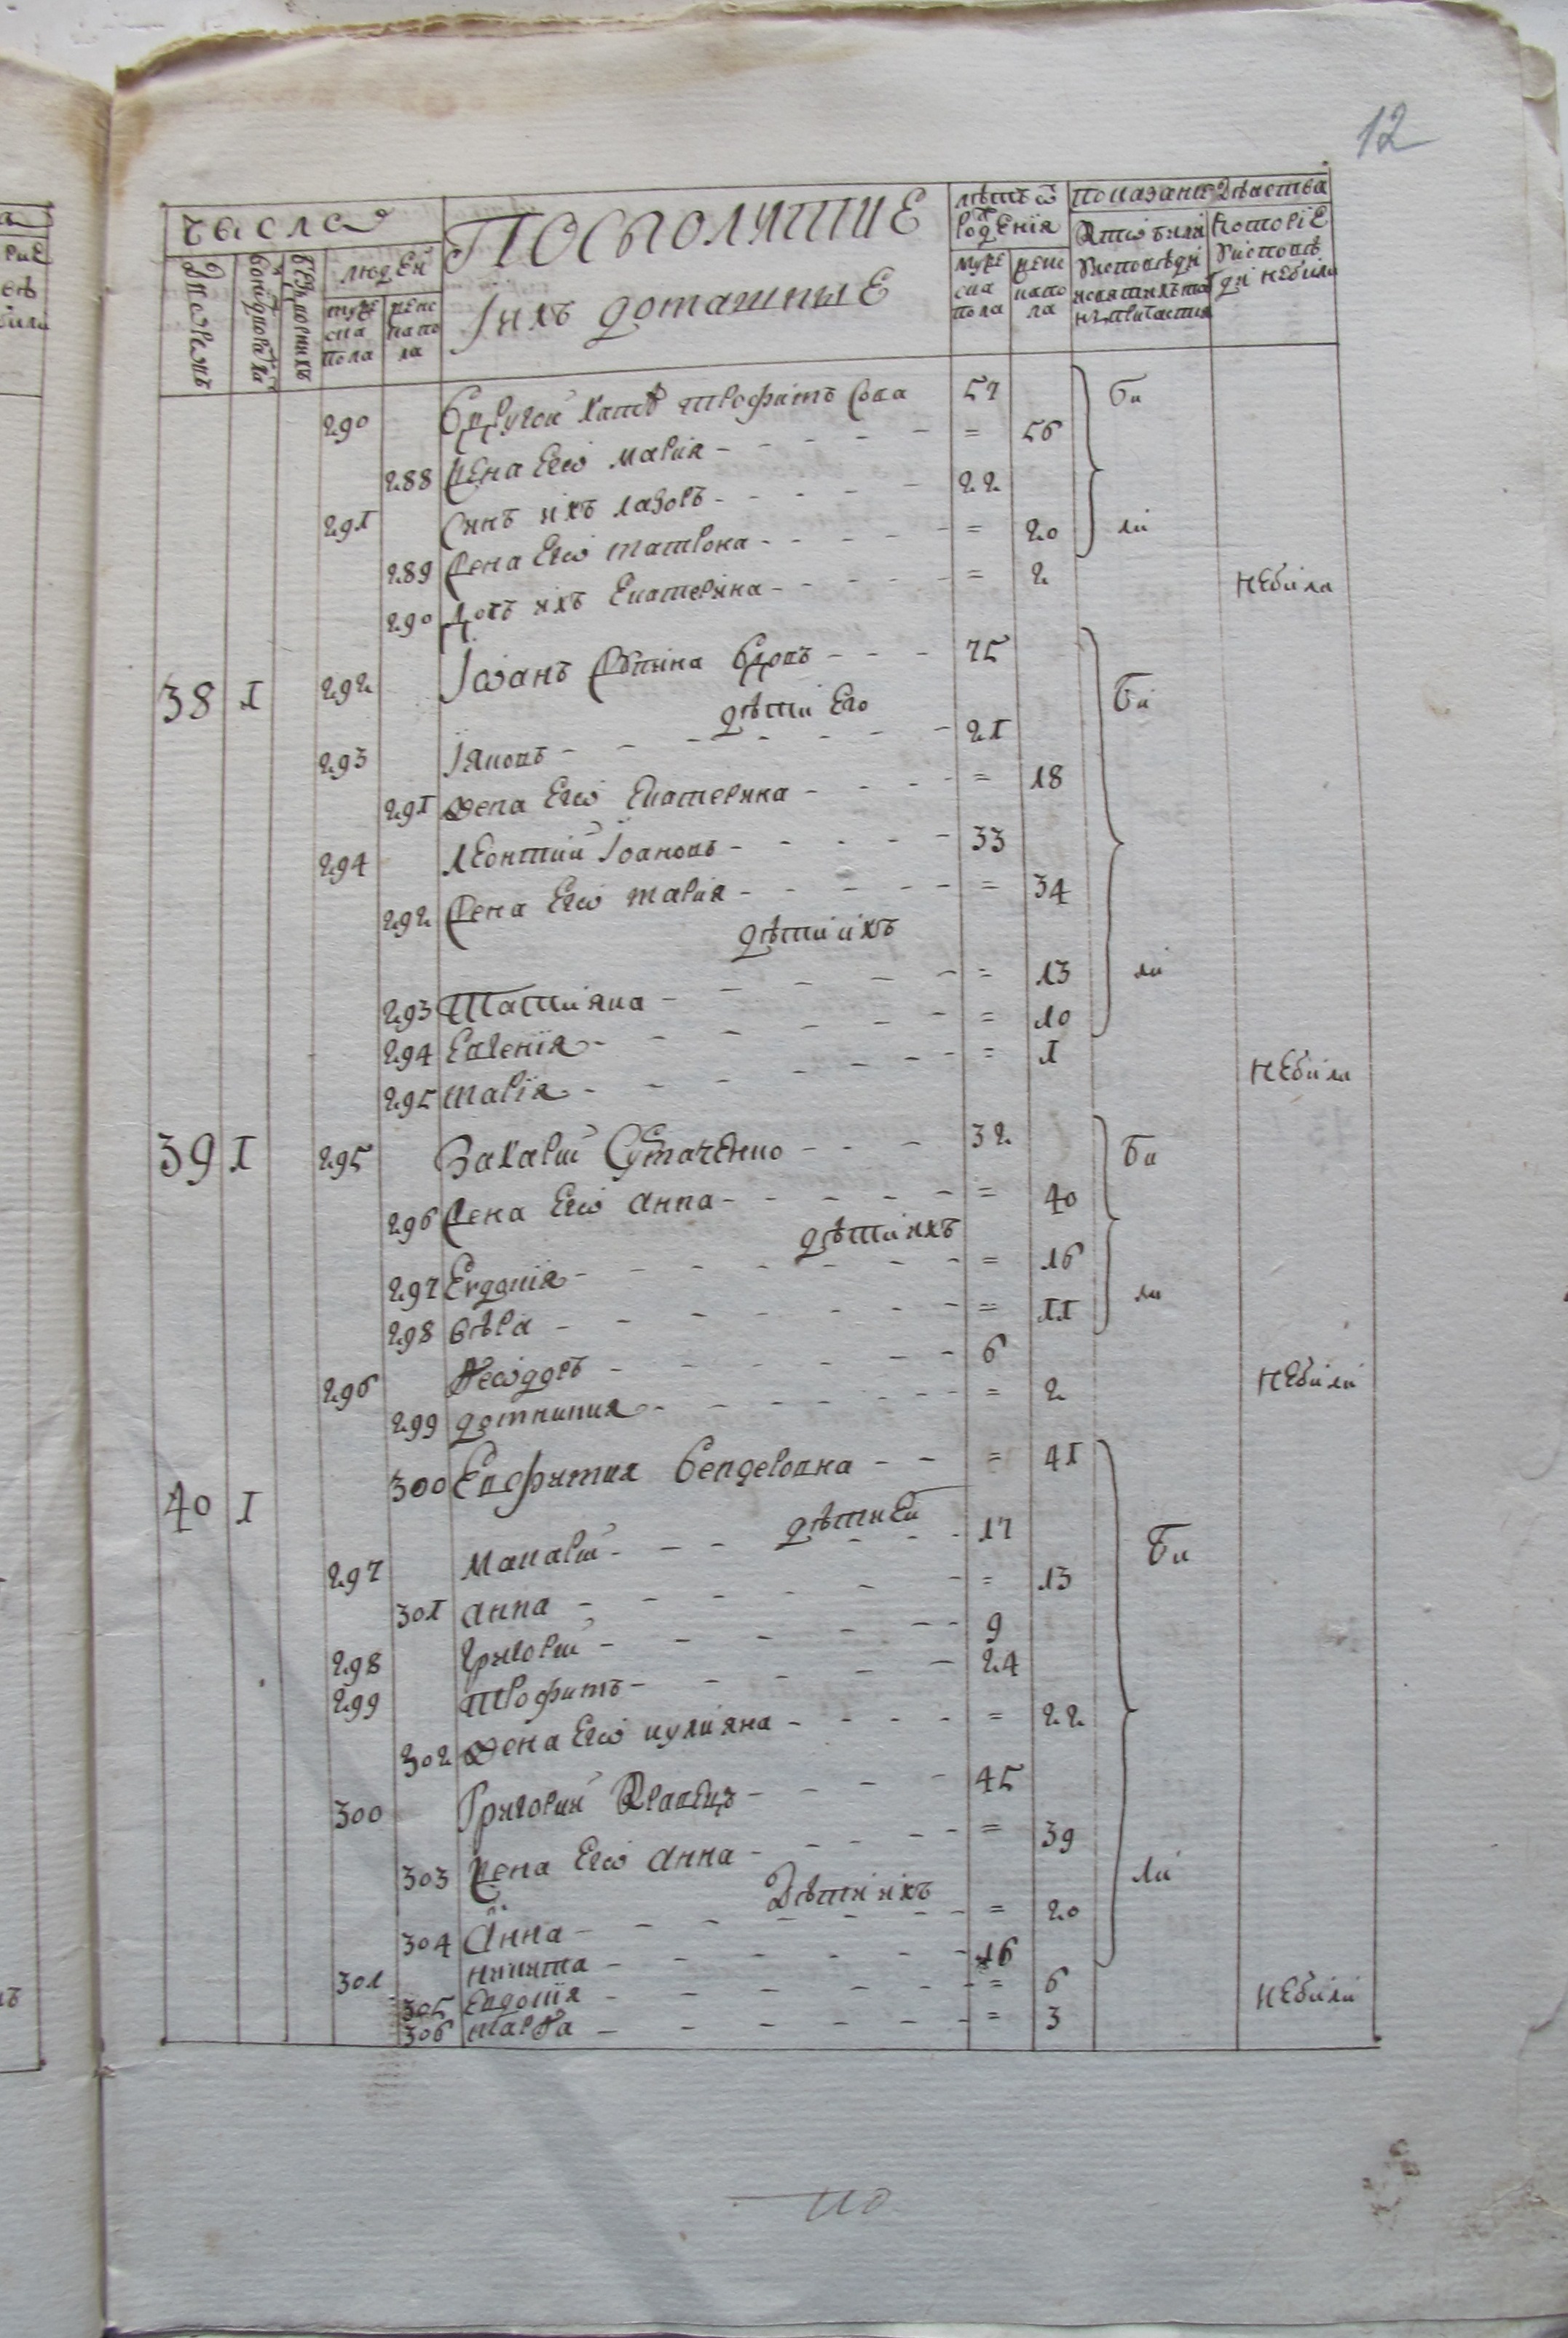 12
числа
Посполитие
лѣтъ ѿ рожденія
показаніе дѣйства
дворовъ
бездворнихъ
людей
муже ска пола
женс каго по ла
Ихъ домашные
муже ска пола
женс каго по ла
Кто били у исповѣди и святихъ таинъ причастія
Которіе у исповѣди небили
290 В другой хатѣ Трофимъ Сова 57
би
288 Жена Его Мария = 56
291 Синъ ихъ Лазоръ 22
289 Жена Его Татяна = 20
ли
290 Дочъ ихъ Екатерина = 2 небила
38 1 292 Іоанъ вдовъ 75
би
дѣти Его
293 Іяковъ 21
291 Жена Его Екатерина = 18
294 Леонтий Іоановъ 33
292 Жена Его Мария = 34
дѣти ихъ
293 Татияна = 13
ли
294 Евгенія = 10
295 Марія = 1 небила
39 1 295 Захарий 32
би
296 Жена Его Анна = 40
дѣти ихъ
297 Евдокія = 16
298 Вѣра = 11
ли
296 Ѳеодоръ 6
небили
299 Домникия = 2
40 1 300 Евфимия = 41
дѣти Ей
297 Макарий 17
би
301 Анна = 13
298 Григорий 9
299 Трофимъ 24
302 Жена Его Иулияна = 22
300 Григорий Кравецъ 45
303 Жена Его Анна = 39
ли
Дѣти ихъ
304 Анна = 20
301 Никита 16
305 Евдокія = 6
небили
306 Марѳа = 3